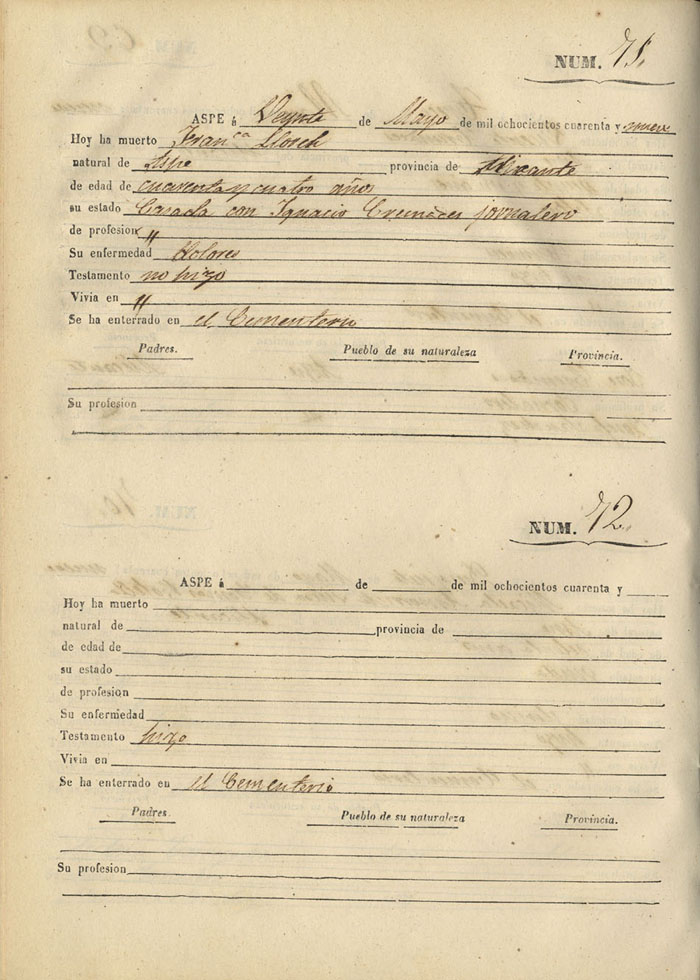 NUM. 71.
ASPE á Veynte de Mayo de mil ochocientos cuarenta y nueve
Hoy ha muerto Fran.ca Llorch
natural de Aspe provincia de Alicante
de edad de cuarenta y cuatro años
su estado Casada con Ignacio Cremades jornalero
de profesion "
Su enfermedad dolores
Testamento no hizo
Vivia en "
Se ha enterrado en el Cementerio
Padres. Pueblo de su naturaleza Provincia.
Su profesion
NUM. 72.
ASPE á de de mil ochocientos cuarenta y
Hoy ha muerto
natural de provincia de
de edad de
su estado
de profesion
Su enfermedad
Testamento hizo
Vivia en
Se ha enterrado en el Cementerio
Padres. Pueblo de su naturaleza Provincia.
Su profesion